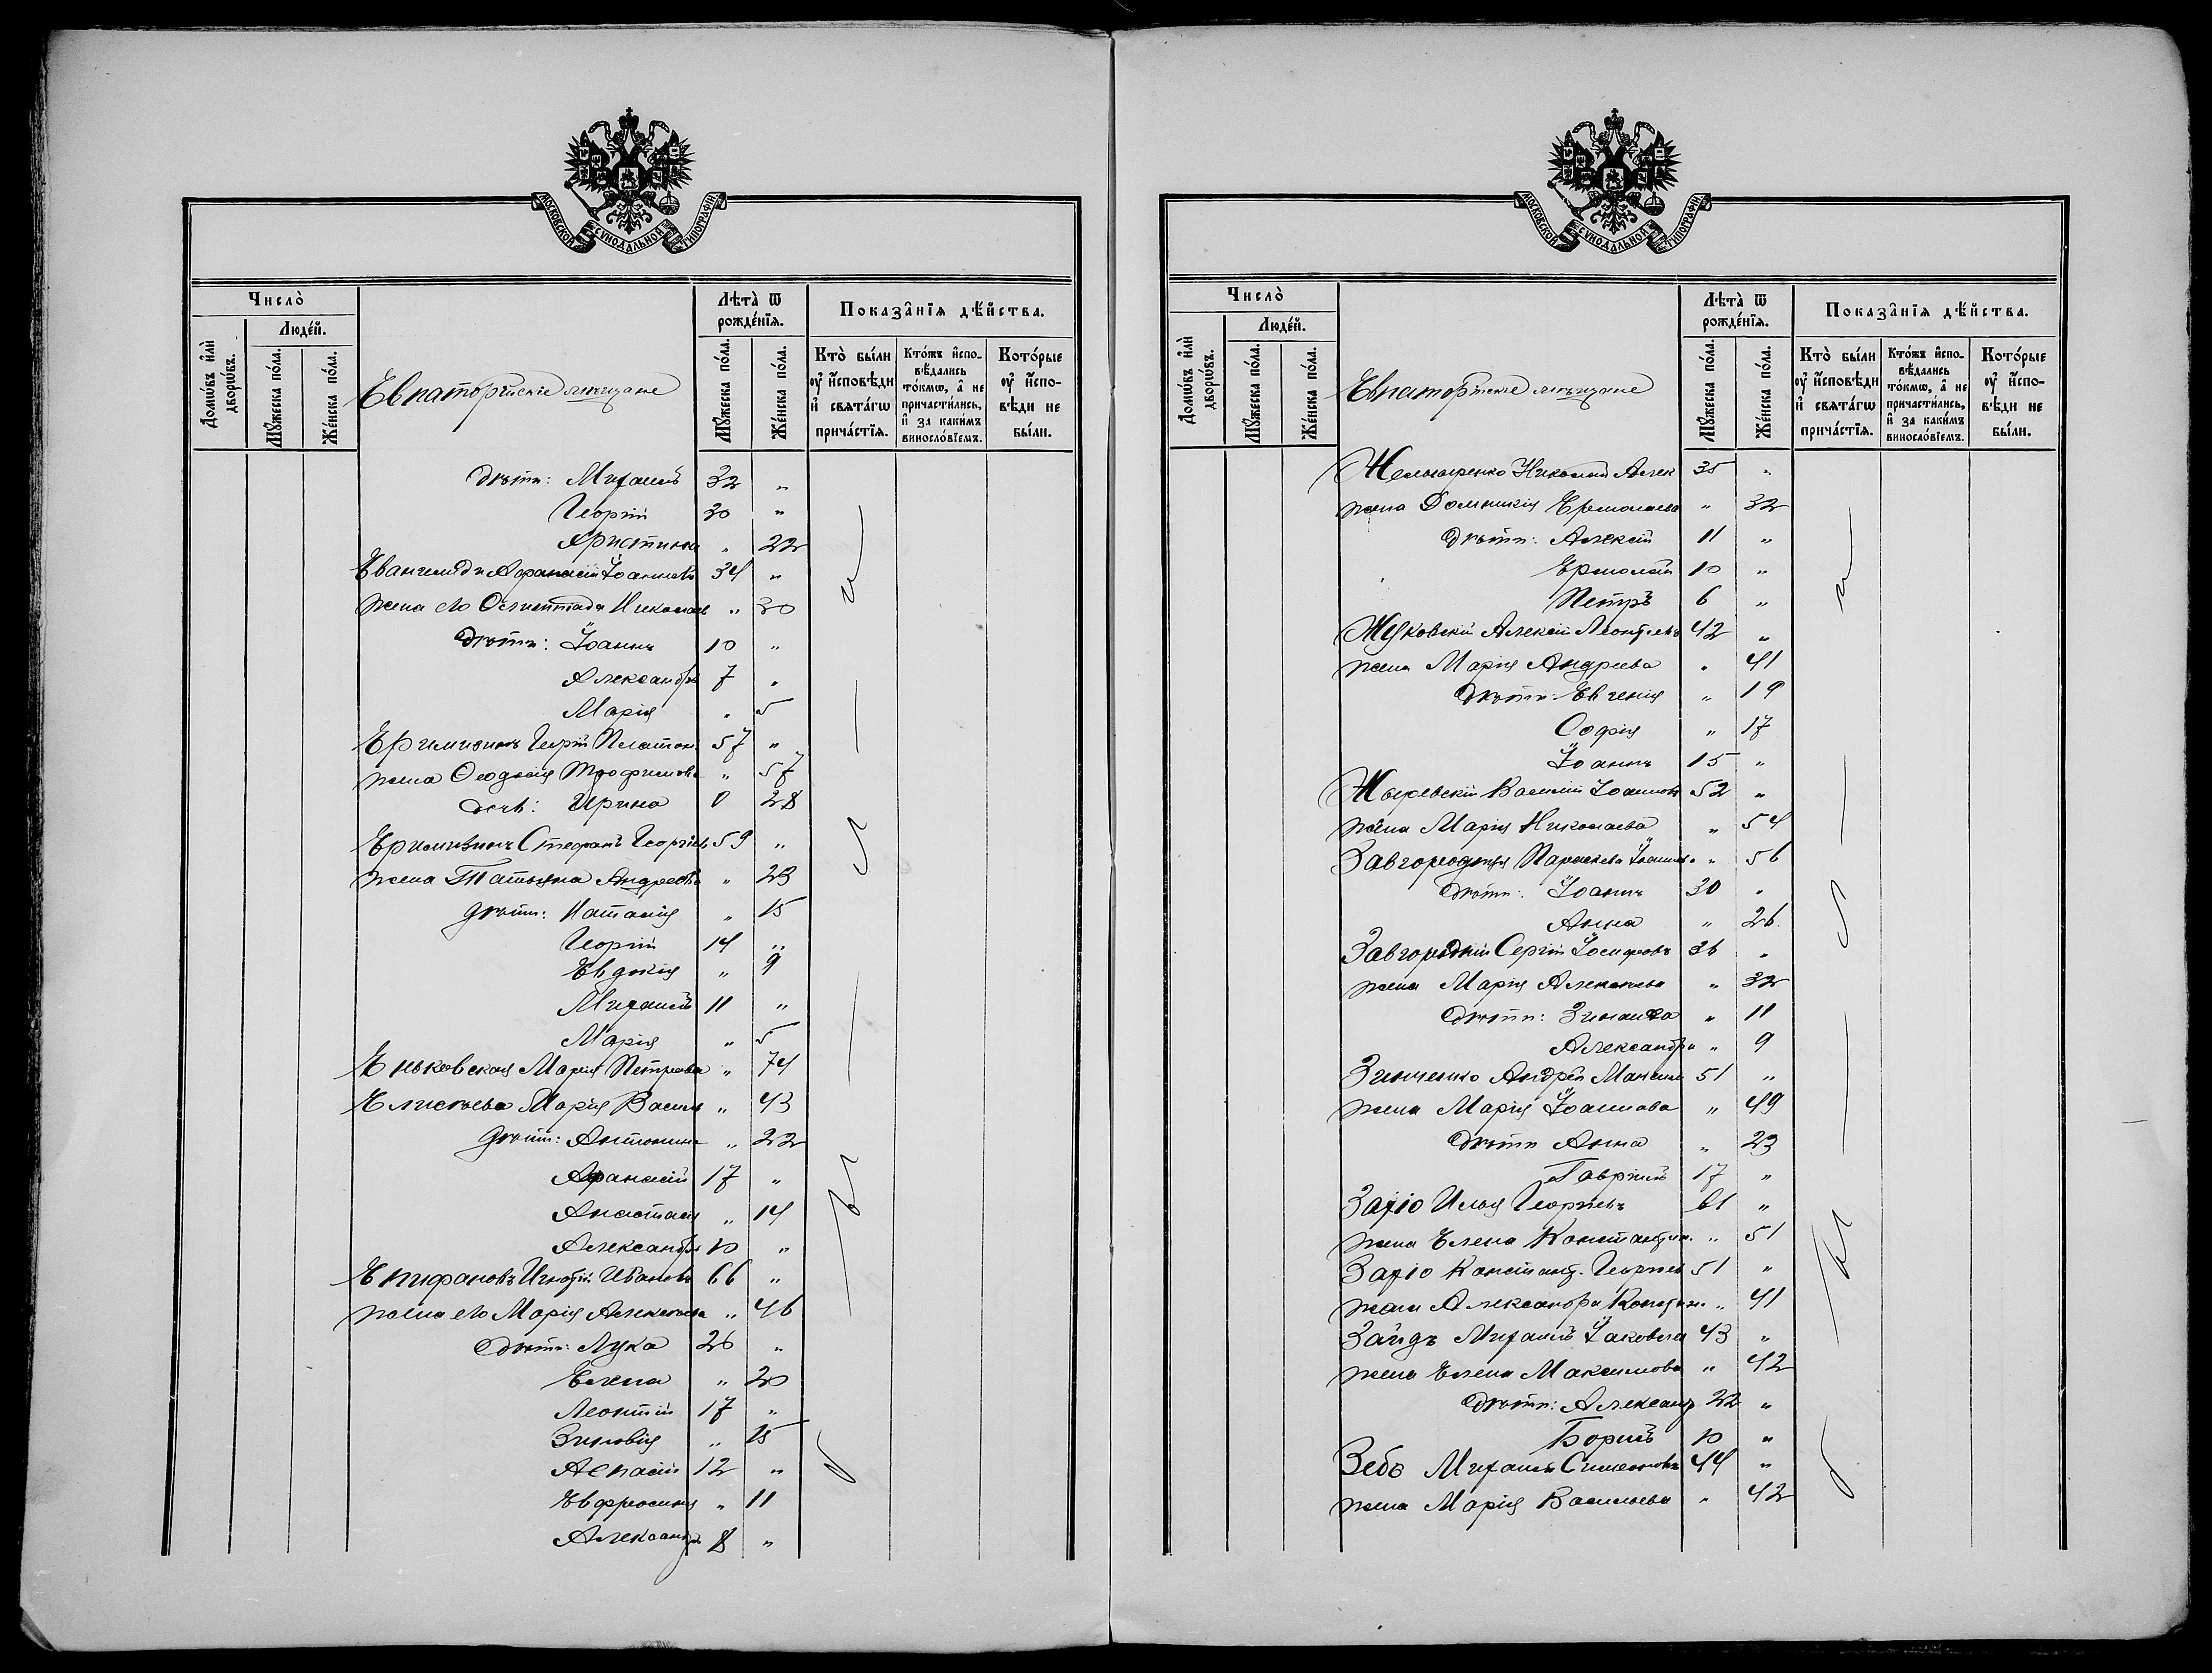 МОСКОВСКОЙ СѴНОДАЛЬНОЙ ТИПОГРАФІИ
Число̀
Домѡвъ и҆лѝ дворѡвъ.
Люде́й.
Мꙋ́жеска по́ла.
Же́нска по́ла.
Евпаторійскіе мѣщане
Лѣта̀ ѿ рожде́нїѧ.
Мꙋ́жеска по́ла.
Же́нска по́ла.
Показа̑нїѧ дѣ́йства.
Кто̀ бы́ли ᲂу҆ и҆́сповѣди и҆ свѧта́гѡ прича́стїѧ.
Кто́жъ и҆спо- вѣ́дались то́кмѡ, а҆ не причасти́лись, и҆ за каки́мъ винослѡ́вїемъ.
Кото́рые ᲂу҆ и҆́спо- вѣди не бы́ли.
дѣти: Михаилъ 32 "
Георгій 30 "
Христина " 22
Евангелиди Афанасій Іоанновъ 34 "
жена его Олимпіада Николаев " 30
дѣти: Іоаннъ 10 "
Александръ 7 "
Марія " 5
Георгій Платон. 57 "
жена Феодосія Трофимова " 57
дочь: Ирина 0 28
Стефанъ Георгіев 59 "
жена Татьяна Андреева " 23
дѣти: Наталія " 15
Георгій 14 "
Евдокія " 9
Михаилъ 11 "
Марія " 5
Еньковская Марія Петрова " 74
Елисѣева Марія Васил " 43
дѣти: Антонина " 22
Афанасій 17 "
Анастасія " 14
Александръ 10 "
Епифановъ Игнатій Ивановъ 66 "
жена его Марія Алексѣева " 46
дѣти: Лука 26 "
Елена " 20
Леонтій 17 "
Зиновія " 15
12 "
Евфросинія " 11
Александръ 8 "
и
с
п
о
МОСКОВСКОЙ СѴНОДАЛЬНОЙ ТИПОГРАФІИ
Число̀
Домѡвъ и҆лѝ дворѡвъ.
Люде́й.
Мꙋ́жеска по́ла.
Же́нска по́ла.
Евпаторійскіе мѣщане
Лѣта̀ ѿ рожде́нїѧ.
Мꙋ́жеска по́ла.
Же́нска по́ла.
Показа̑нїѧ дѣ́йства.
Кто̀ бы́ли ᲂу҆ и҆́сповѣди и҆ свѧта́гѡ прича́стїѧ.
Кто́жъ и҆спо- вѣ́дались то́кмѡ, а҆ не причасти́лись, и҆ за каки́мъ винослѡ́вїемъ.
Кото́рые ᲂу҆ и҆́спо- вѣди не бы́ли.
Николай Алек 35 "
жена Домникія Ермолаева " 32
дѣти: Алексій 11 "
Ермолай 10 "
Петръ 6 "
Жуковскій Алексій Леонтьевъ 42 "
жена Марія Андреева " 41
дѣти: Евгенія " 19
Софія " 17
Іоаннъ 15 "
Василій Іоанновъ 52 "
жена Марія Николаева " 54
Завгородняя Параскева Іоаннова " 56
дѣти: Іоаннъ 30 "
Анна " 26
Завгородній Сергій Іосифовъ 36 "
жена Марія Алексѣева " 32
дѣти: Зинаида " 11
Александра " 9
Зинченко Андрей Максим 51 "
жена Марія Іоаннова " 49
дѣти Анна " 23
Гавріилъ 17 "
Захіо Илья Георгіевъ 61 "
жена Елена Константин. " 51
Захіо Констант. Георгіев 51 "
жена Александра Констан. " 41
Заидъ Михаилъ Іаковлев 43 "
жена Елена Максимова " 42
дѣти: Александр 22 "
Борисъ 10 "
Зебъ Михаилъ Симеоновъ 44 "
жена Марія Васильева " 42